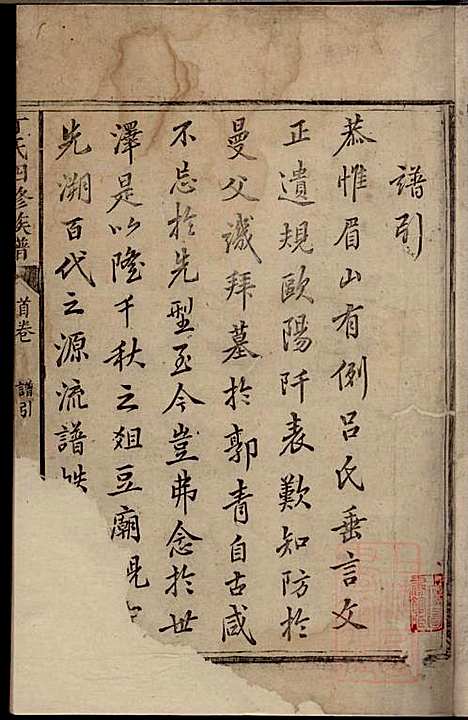 譜引
恭惟眉山有例呂氏垂言文
正遺規歐陽阡表歎知防於
曼父譏拜墓於郭青自古咸
不忘於先型至今豈弗念於世
澤是以隆千秋之俎豆廟
先溯百代之源流譜
丁氏四修族譜
首卷
譜引